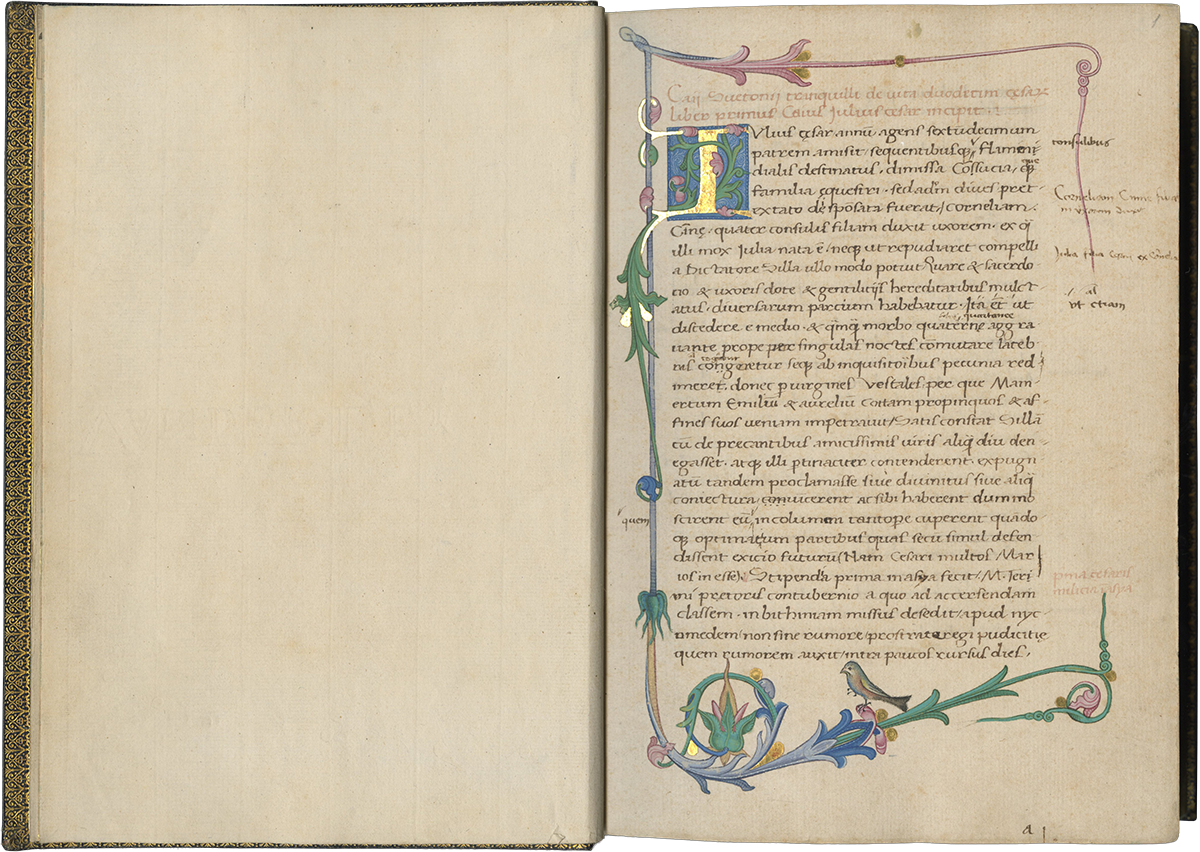 1
Caij Suetonij tranquilli de vita duodecim cesar
liber primus Caius Julius cesar incipit
IVLIUS cesar annũ agens sextũdecimum
patrem amisit sequentibusq; flamen
dialis destinatus, dimissa Cossucia, que
familia equestri sed admodum dives pret-
extato desponsata fuerat, corneliam
Cinne quater consulis filiam duxit uxorem. ex q̃
illi mox Iulia nata ẽ neq; ut repudiaret compelli
a Dictatore Silla ullo modo potuit Quare & sacerdo
cio & uxoris dote & gentilitijs hereditatibus mulct
atus, diversarum parcium habebatur. Ita ẽt ut
discedere e medio. & morbo quaterne aggra
vante prope per singulas noctes comutare lateb
ras cogeretur seq; ab inquisitoribus pecunia red
imeret, donec p virgines vestales per que Mam
ertum Emiliũ & aureliũ Cottam propinquos & af
fines suos veniam impetravit Satis constat Sillã
cũ de precantibus amicissimis viris aliq̃ diu den
egasset. atq; illi ptinaciter contenderent. expugn
atũ tandem proclamasse sive divinitus sive aliq̃
coniectura, convicerent ac sibi haberent dummo
scirent eũ incolumem tantope cuperent quãdo
q; optimatum partibus quas secũ simul defen
dissent exicio futurus Nam Cesari multos Mar
ios in esse Stipendia prima in asya fecit M. Ter
mi pretoris contubernio a quo ad accersendam
classem in bithiniam missus desedit apud nyc
omedem non sine rumore prostrate regi pudicitie
quem rumorem auxit intra paucos rursus dies.
consulibus
Corneliam Cinne filiam
in uxorem duxit
Julia filia Cesaris ex Cornelia
al
vt etiam
quem
pma cesaris
milicia in asya
a 1